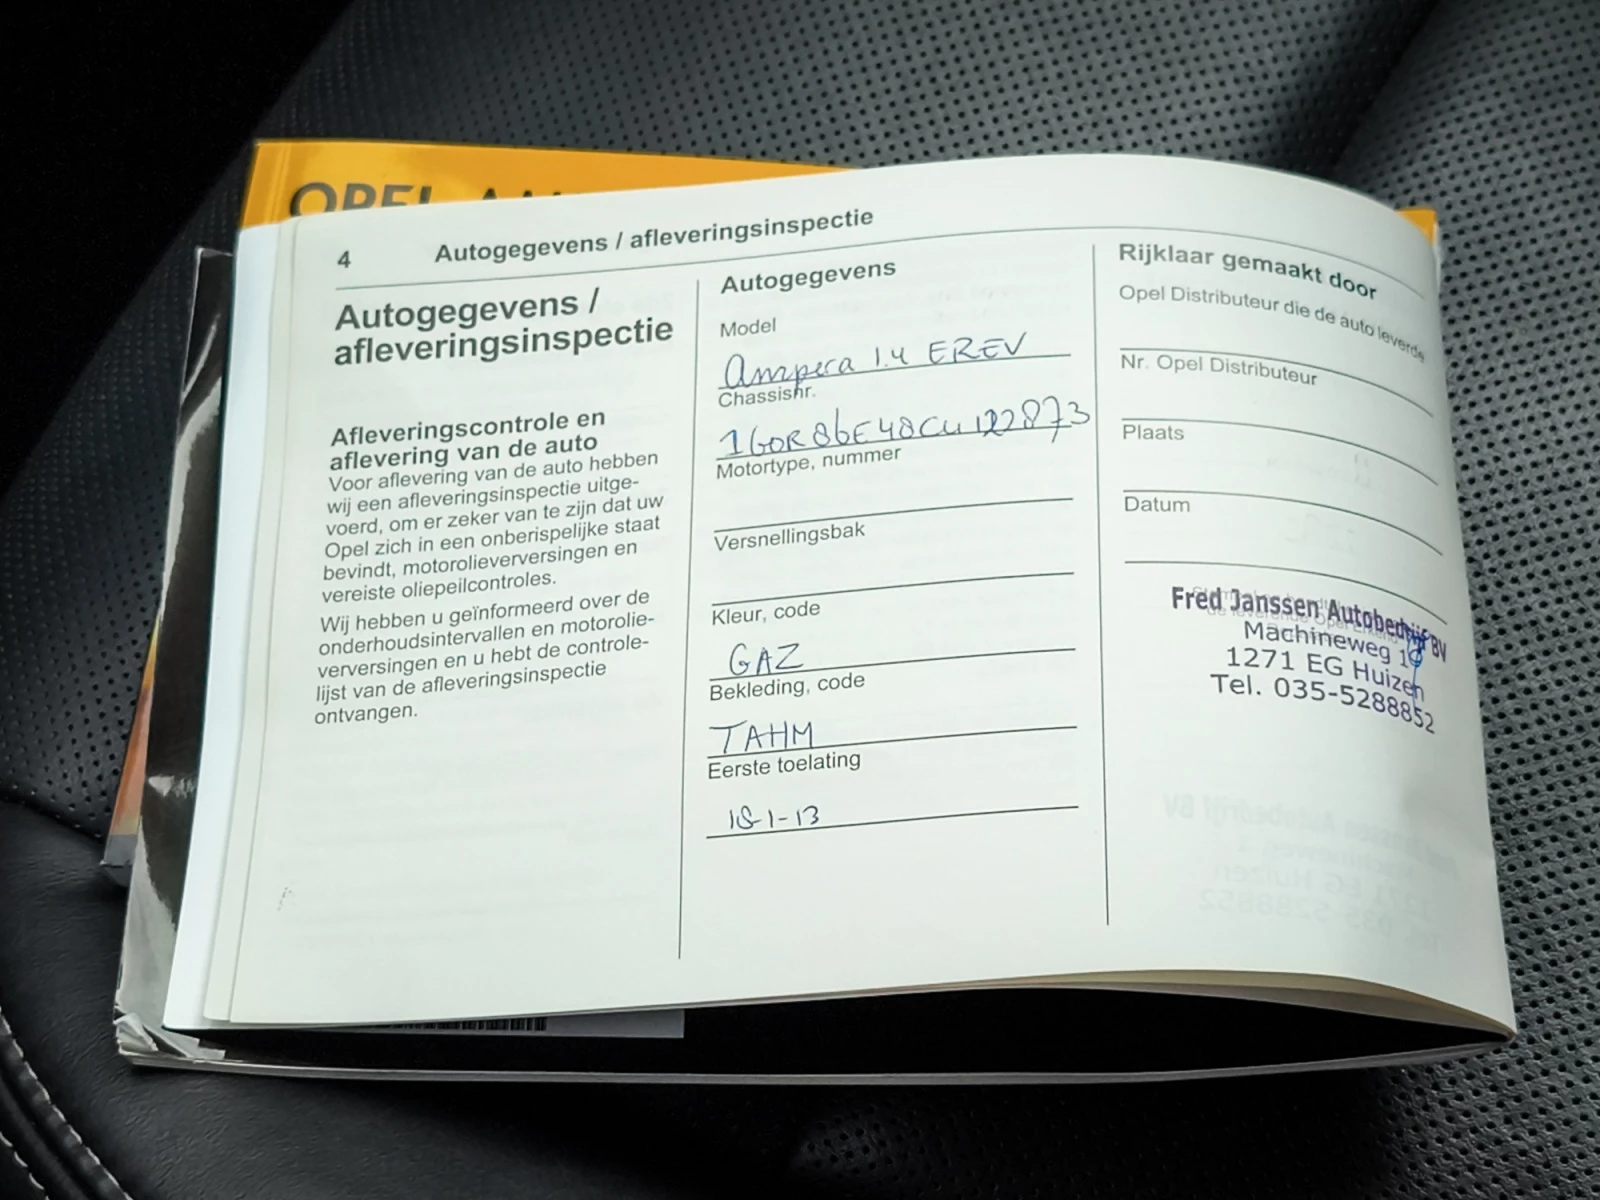 OPEL AM
4 Autogegevens / afleveringsinspectie
Autogegevens /
afleveringsinspectie
Afleveringscontrole en
aflevering van de auto
Voor aflevering van de auto hebben
wij een afleveringsinspectie uitge-
voerd, om er zeker van te zijn dat uw
Opel zich in een onberispelijke staat
bevindt, motorolieverversingen en
vereiste oliepeilcontroles.
Wij hebben u geïnformeerd over de
onderhoudsintervallen en motorolie-
verversingen en u hebt de controle-
lijst van de afleveringsinspectie
ontvangen.
Autogegevens
Model
Ampera 1.4 EREV
Chassisnr.
1G0R86E48CU122873
Motortype, nummer
Versnellingsbak
Kleur, code
GAZ
Bekleding, code
TAHM
Eerste toelating
18-1-13
Rijklaar gemaakt door
Opel Distributeur die de auto leverde
Nr. Opel Distributeur
Plaats
Datum
Fred Janssen Autobedrijf BV
Machineweg 1
1271 EG Huizen
Tel. 035-5288852